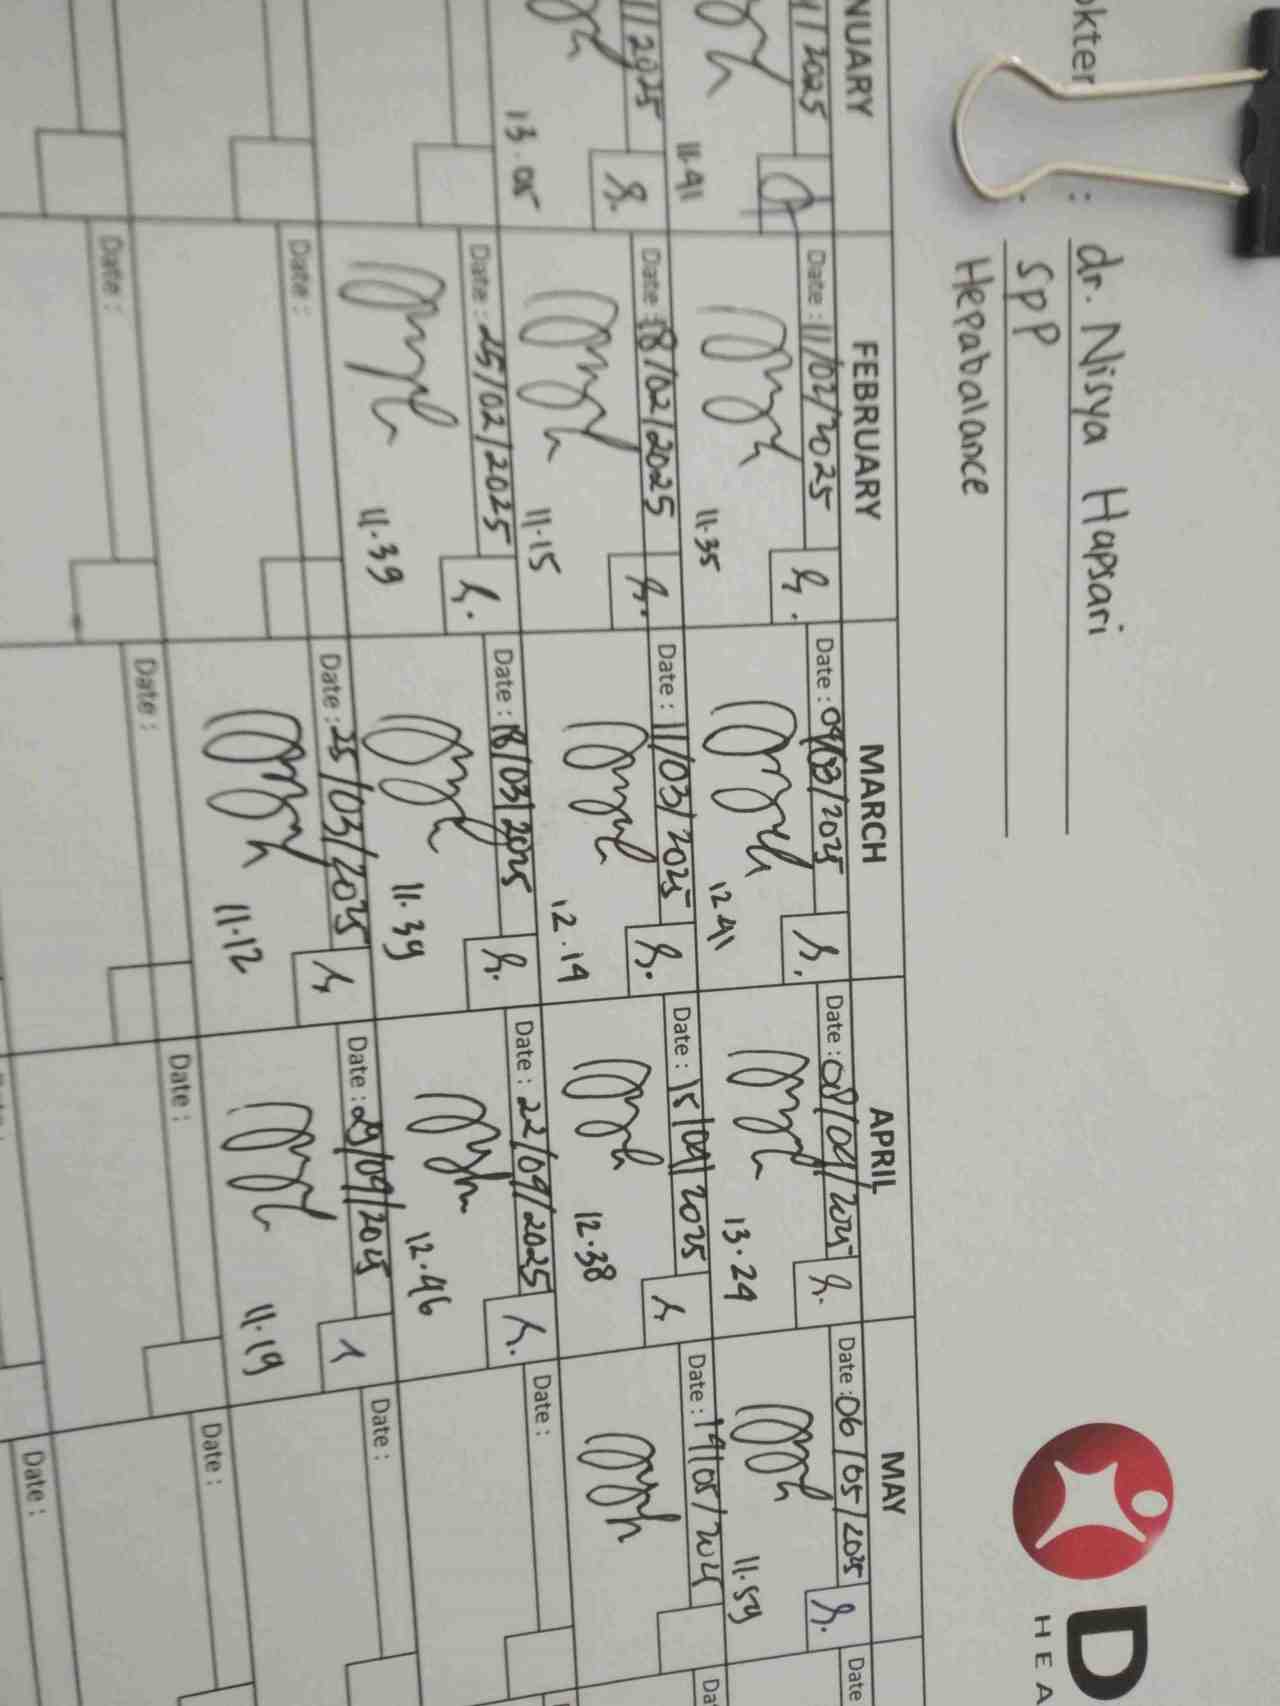 okter : dr. Nisya Hapsari
: SpP
Hepabalance
D
HEA
NUARY
FEBRUARY
MARCH
APRIL
MAY
1/2025
11.41
Date : 11/02/2025
11.35
Date : 04/03/2025
12.41
Date : 08/04/2025
13.24
Date : 06/05/2025
11.59
Date
1/2025
13.05
Date : 18/02/2025
11.15
Date : 11/03/2025
12.14
Date : 15/04/2025
12.38
Date : 14/05/2025
Da
Date : 25/02/2025
11.39
Date : 18/03/2025
11.39
Date : 22/04/2025
12.46
Date :
Date :
Date : 25/03/2025
11.12
Date : 29/04/2025
11.19
Date :
Date :
Date :
Date :
Date :
Date :